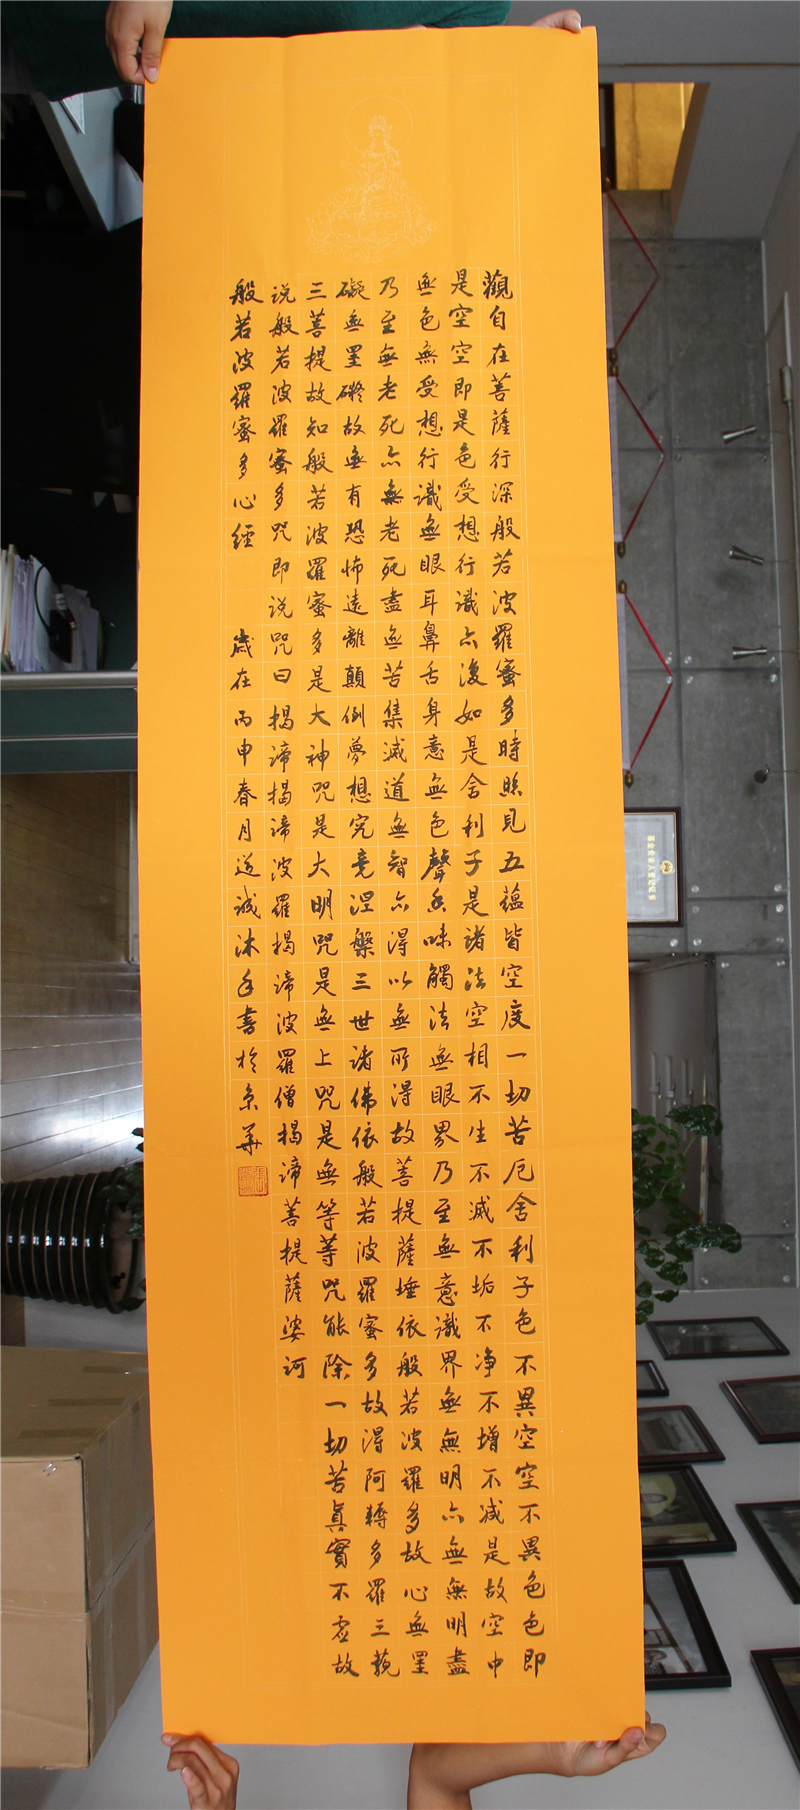 觀自在菩薩行深般若波羅蜜多時照見五蘊皆空度一切苦厄舍利子色不異空空不異色色即
是空空即是色受想行識亦復如是舍利子是諸法空相不生不滅不垢不净不增不减是故空中
無色無受想行識無眼耳鼻舌身意無色聲香味觸法無眼界乃至無意識界無無明亦無無明盡
乃至無老死亦無老死盡無苦集滅道無智亦得以無所得故菩提薩埵依般若波羅多故心無罣
礙無罣礙故無有恐怖遠離顛倒夢想究竟涅槃三世諸佛依般若波羅蜜多故得阿耨多羅三藐
三菩提故知般若波羅蜜多是大神咒是大明咒是無上咒是無等等咒能除一切苦真實不虛故
说般若波羅蜜多咒即说咒曰揭諦揭諦波羅揭諦波羅僧揭諦菩提薩婆訶
般若波羅蜜多心經 歲在丙申春月誠沐手書於京華